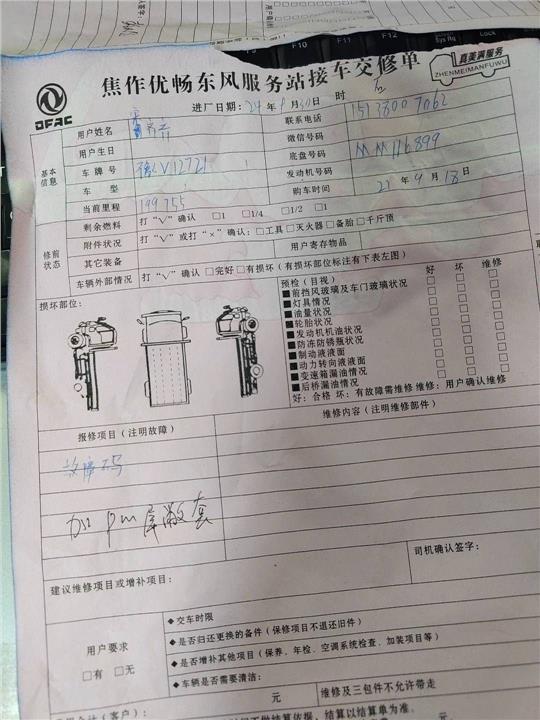 F10 F11 F12 Sys Rq Lock
焦作优畅东风服务站接车交修单
真美满服务
ZHENMEIMANFUWU
DFAC
进厂日期：24年9月30日 时
基本信息
用户姓名
联系电话 15138007062
用户生日
微信号码
车牌号 豫LV12721
底盘号码 MM116899
车 型
发动机号码
当前里程 199755
购车时间 21年9月18日
修前状态
剩余燃料 打“√”确认 □1 □1/4 □1/2 □1
附件状况 打“√”或打“×”确认：□工具□灭火器□备胎□千斤顶
其它装备
用户寄存物品
车辆外部情况 打“√”确认 □完好 □有损坏（有损坏部位标注有下表左图）
损坏部位：
预检（目视） 好 坏 维修
■前挡风玻璃及车门玻璃状况 □ □ □
■灯具情况 □ □ □
■油量状况 □ □ □
■轮胎状况 □ □ □
■发动机机油状况 □ □ □
■防冻防锈瓶状况 □ □ □
■制动液液面 □ □ □
■动力转向液液面 □ □ □
■变速箱漏油情况 □ □ □
■后桥漏油情况 □ □ □
好：合格 坏：有故障需维修 维修：用户确认维修
报修项目（注明故障）
维修内容（注明维修部件）
故障码
加 pm
司机确认签字：
建议维修项目或增补项目：
用户要求
□有 □无
◆交车时限
◆是否归还更换的备件（保修项目不退还旧件）
◆是否增补其他项目（保养、年检、空调系统检查、加装项目等）
◆车辆是否需要清洁：
元
维修及三包件不允许带走
合计（客户）：
元
结算依据，结算以结算单为准。